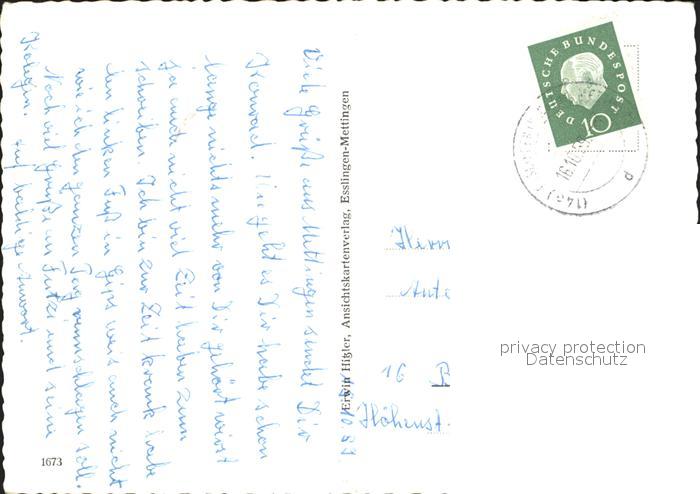 Viele Grüße aus Mettingen sendet Dir
Konrad. Wie geht es Dir habe schon
lange nichts mehr von Dir gehört wirst
ja auch nicht viel Zeit haben zum
schreiben. Ich bin zur Zeit krank habe
den linken Fuß in Gips weis auch nicht
wie ich den ganzen Tag rumschlagen soll.
Noch viel Grüße an Fritzi und seine
Kolegin. auf baldige Antwort.
Erwin Hißler, Ansichtskartenverlag, Esslingen-Mettingen
1673
DEUTSCHE BUNDESPOST
10
16.10.59
(14a)
d
Herrn
16
Höhenst.
privacy protection
Datenschutz